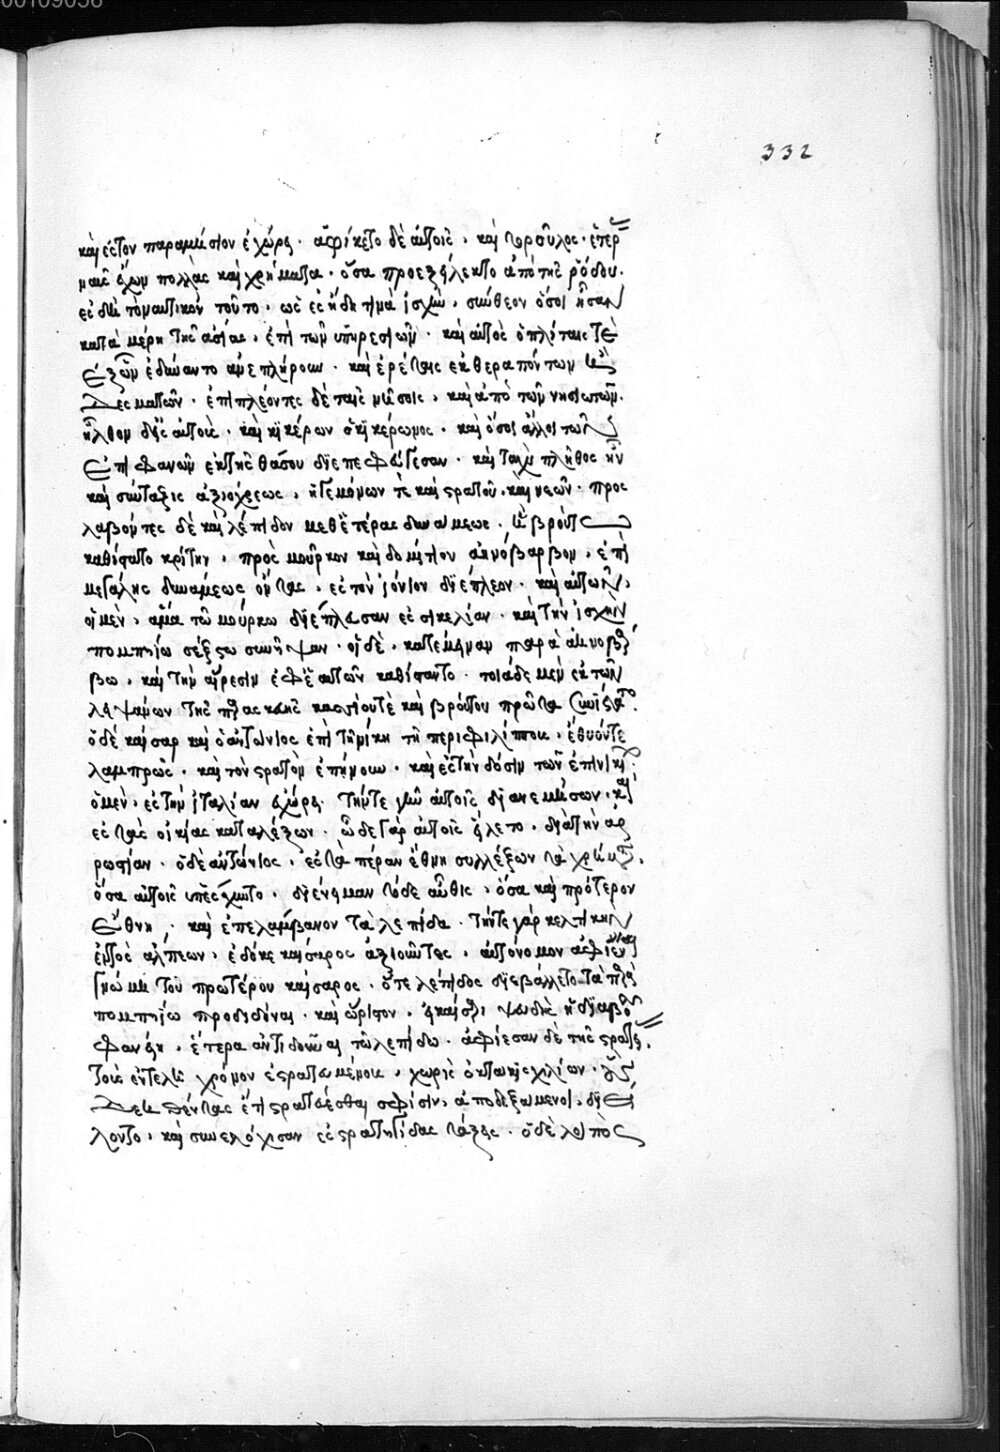 00109056
332
καὶ ἐς τὸν παραπλήσιον ἐχώρει. ἀφίκετο δὲ αὐτοῖς, καὶ τορούλος, ἑτέρ
μας ἔχων πολλὰς καὶ χρήματα. ὅσα προεξείλεκτο ἀπὸ τῆς ῥόδου.
ἐς δὴ τὸ ναυτικὸν τοῦτο, ὡς ἐς ἤδη τινὰ ἰσχὺν, συνέθεον ὅσοι ἦσαν
κατὰ μέρη τῆς ἀσίας, ἐπὶ τῶν ὑπηρεσιῶν. καὶ αὐτὸς ὁπλίταις τε
ἐξ ὧν ἐδύναντο ἀνεπλήρουν. καὶ ἐρέταις ἐκ θεραπόντων καὶ
δεσμωτῶν. ἐπιπλέοντες δὲ ταῖς νήσοις, καὶ ἀπὸ τῶν νησιωτῶν.
ἦλθον δὲ ἐς αὐτοὺς. καὶ κικέρων ὁ κικέρωνος. καὶ ὅσοι ἄλλοι τῶν
ἐπιφανῶν ἐκ τῆς θάσου διεπεφεύγεσαν. καὶ ταχὺ πλῆθος ἦν
καὶ σύνταξις ἀξιόχρεως, ἡγεμόνων τε καὶ στρατοῦ, καὶ νεῶν. προσ
λαβόντες δὲ καὶ λέπιδον μεθ' ἑτέρας δυνάμεως, ἣ βρούτῳ
καθίστατο κρήτην, πρὸς μοῦρκον καὶ δομίτιον ἀηνόβαρβον, ἐπὶ
μεγάλης δυνάμεως ὄντας, ἐς τὸν ἰόνιον διέπλεον. καὶ αὐτῶν,
οἱ μὲν, ἅμα τῷ μούρκῳ διέπλευσαν ἐς σικελίαν. καὶ τὴν ἰσχὺν
πομπηίῳ σέξτῳ συνῆψαν. οἱ δὲ, κατέμειναν παρὰ ἀηνοβάρ
βῳ, καὶ τὴν αἵρεσιν ἐφ' ἑαυτῶν καθίσταντο. τοιάδε μὲν ἐκ τῶν
λειψάνων τῆς παρασκευῆς κασσίου τε καὶ βρούτου πρῶτα συνίστατο.
ὁ δὲ καῖσαρ καὶ ὁ ἀντώνιος ἐπὶ τῇ νίκῃ τῇ περὶ φιλίππους, ἔθυόν τε
λαμπρῶς. καὶ τὸν στρατὸν ἐπῄνουν. καὶ ἐς τὴν δόσιν τῶν ἐπινικί
ὁ μὲν, ἐς τὴν ἰταλίαν ἐχώρει. τήν τε γῆν αὐτοῖς διανεμήσων, καὶ
ἐς τὰς οἰκίας καταλέξων. ὧδε γὰρ αὐτοῖς εἵλετο, διὰ τὴν ἀρ
ρωστίαν. ὁ δὲ ἀντώνιος, ἐς τὰ πέραν ἔθνη συλλέξων τὰ χρήματα,
ὅσα αὐτοῖς ὑπέσχηντο. διένειμαν τότε αὖθις, ὅσα καὶ πρότερον
ἔθνη, καὶ ἐπελάμβανον τὰ λεπίδα. τήν τε γὰρ κελτικὴν
ἐντὸς ἄλπεων, ἐδόκει καίσαρος ἀξιοῦντος, αὐτόνομον ἀφιέναι
γνώμῃ τοῦ προτέρου καίσαρος. ὅ τε λέπιδος διεβάλλετο τὰ πράγ
πομπηίῳ προδιδόναι. καὶ ὥριστον, εἰ καίσαρι ψευδὴς ἡ διαβολὴ
φανείη, ἕτερα ἀντιδοῦναι τῷ λεπίδῳ. ἀφίεσαν δὲ τῆς στρατείας,
τοὺς ἐντελῆ χρόνον ἐστρατευμένους, χωρὶς ὀκτακισχιλίων. οὓς
δεηθέντας ἔτι στρατεύεσθαι σφίσιν, ἀποδεξάμενοι, διεί
λοντο, καὶ συνελόχισαν ἐς στρατηγίδας τάξεις. ὁ δὲ λοιπὸς